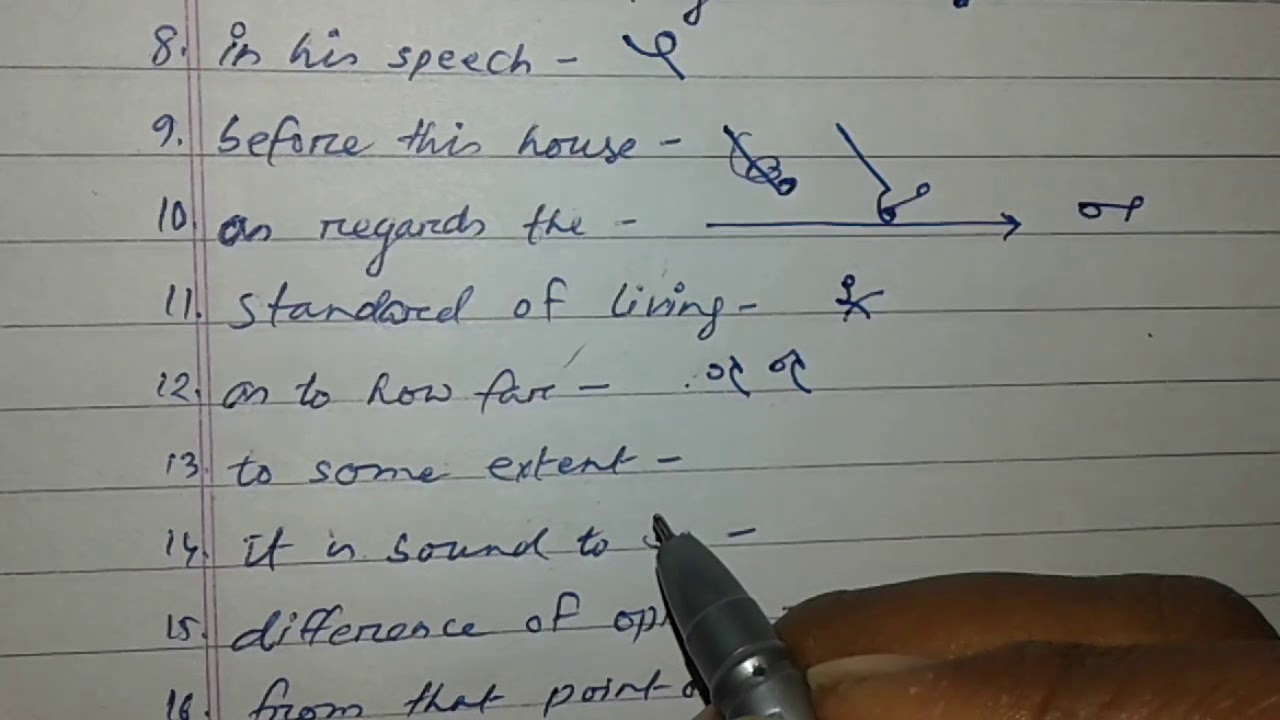 8. in his speech -
9. before this house -
10. as regards the -
11. standard of living -
12. as to how far -
13. to some extent -
14. it is sound to -
15. difference of
16. from that point